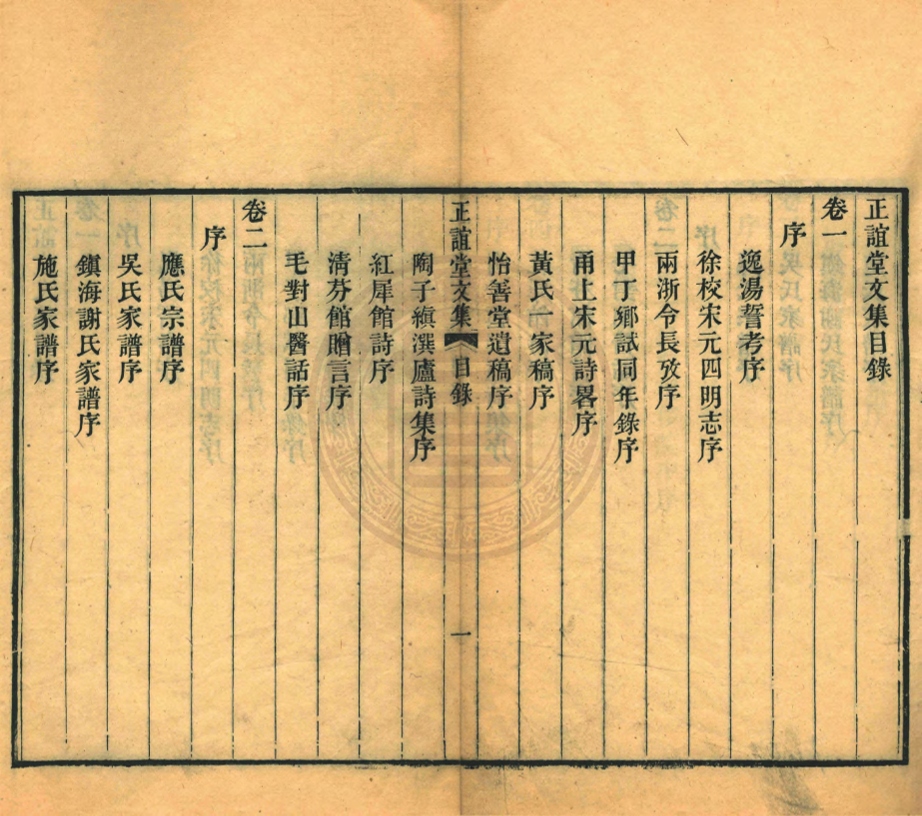 正誼堂文集目錄
卷一
序
逸湯誓考序
徐校宋元四明志序
兩浙令長攷序
甲丁鄉試同年錄序
甬上宋元詩畧序
黃氏一家稿序
怡善堂遺稿序
正誼堂文集 目錄 一
陶子縝潠廬詩集序
紅犀館詩序
清芬館贈言序
毛對山醫話序
卷二
序
應氏宗譜序
吳氏家譜序
鎭海謝氏家譜序
施氏家譜序